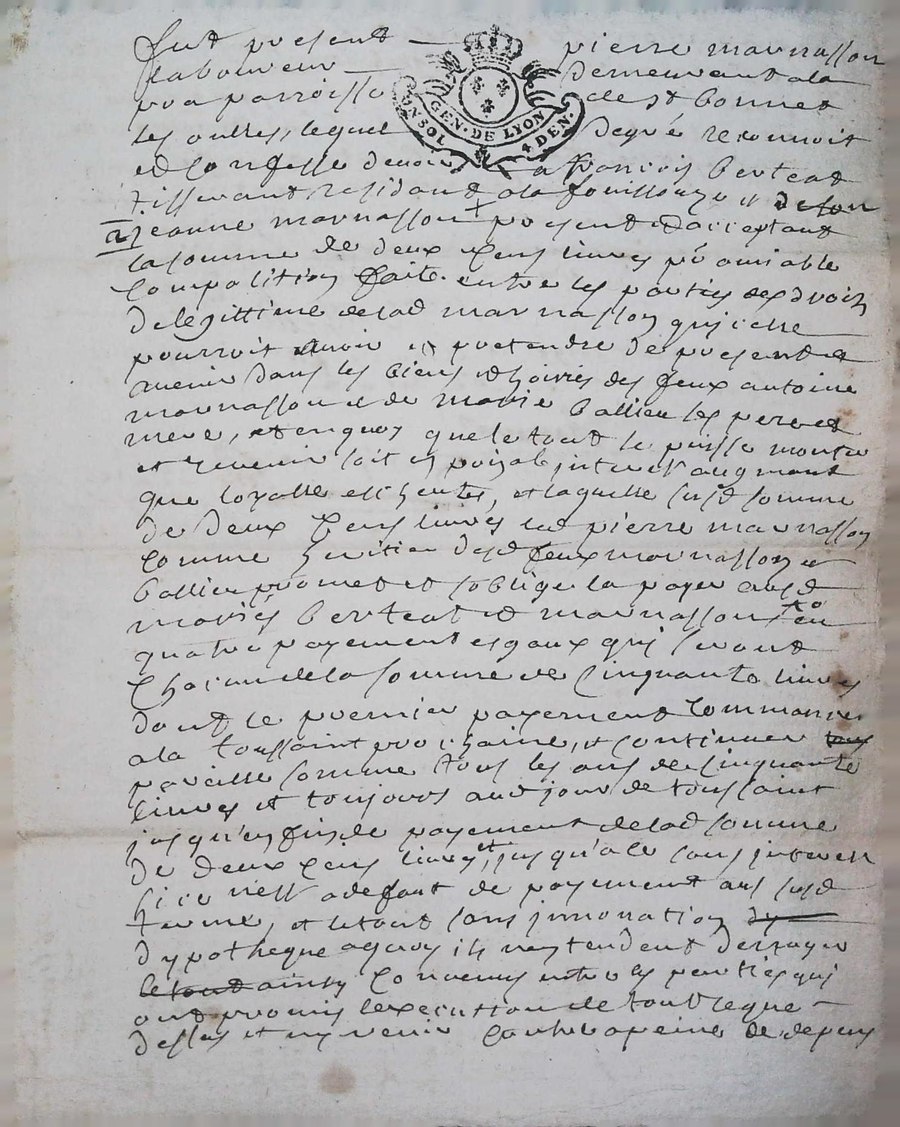 fut present pierre marnasson
laboureur demeurant a la
parroisse de st bonnet
les oulles, lequel degré reconnoit
et confesse devoir a francois berteat
tisserant residant a la fouillouze et
a jeanne marnasson present et acceptant
la somme de deux cens livres pr amiable
composition faite entre les parties des droits
de legittime de lad marnasson qu'elle
pourroit avoir et pretendre de present et a
avenir dans les biens et hoiries des feux antoine
marnasson et de marie ballieu les pere et
mere, et en quoy que le tout se puisse monter
et revenir soit en principal interest augment
que loyalle eschutes, et laquelle susd somme
de deux cens livres led pierre marnasson
comme heritier desd feux marnasson et
ballieu promet et s'oblige la payer ausd
mariés berteat et marnasson en
quatre payement esgaux qui seront
chacun de la somme de cinquante livres
dont le premier payement commancera
a la toussaint prochaine, et continuer
pareille somme tous les ans de cinquante
livres et toujours aud jour de toussaint
jusqu'en fin de payement de lad somme
de deux cens livres et jusqu'a ce sans interest
si ce n'est a defaut de payement aus susd
terme, et le tout sans innovation
d'ypotheque a quoy ils n'entendent derroger
le tout ainsy convenus entre les parties qui
ont promis l'execution de tout ce que
dessus et n'y venir contre a peine de depens
GEN. DE LYON
UN SOL 4 DEN.